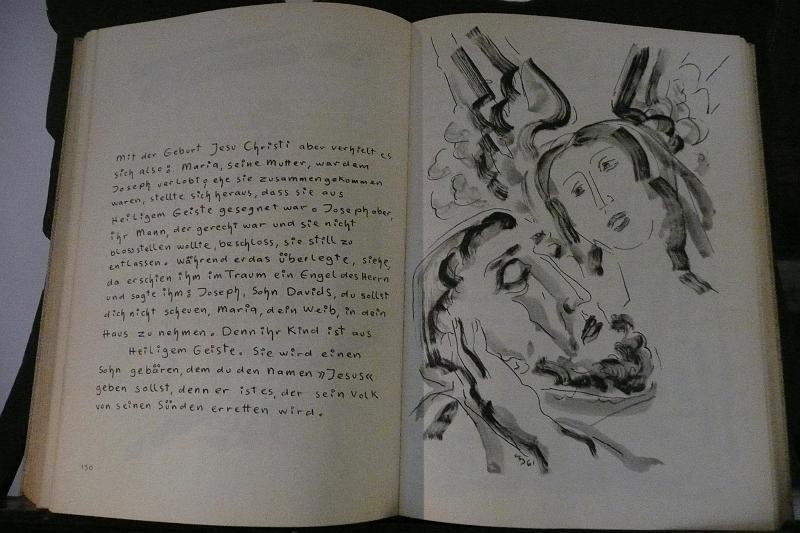 Mit der Geburt Jesu Christi aber verhielt es
sich also: Maria, seine Mutter, war dem
Joseph verlobt; ehe sie zusammengekommen
waren, stellte sich heraus, dass sie aus
Heiligem Geiste gesegnet war. Joseph aber,
ihr Mann, der gerecht war und sie nicht
blosstellen wollte, beschloss, sie still zu
entlassen. Während er das überlegte, siehe,
da erschien ihm im Traum ein Engel des Herrn
und sagte ihm: Joseph, Sohn Davids, du sollst
dich nicht scheuen, Maria, dein Weib, in dein
Haus zu nehmen. Denn ihr Kind ist aus
Heiligem Geiste. Sie wird einen
Sohn gebären, dem du den Namen »Jesus«
geben sollst, denn er ist es, der sein Volk
von seinen Sünden erretten wird.
130
61